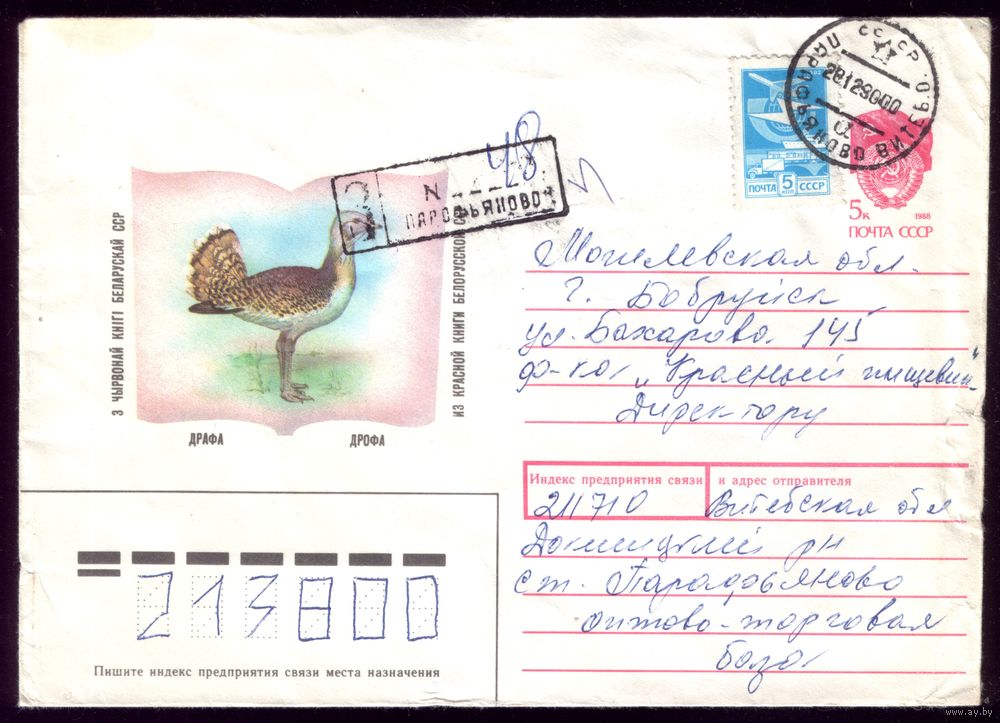 З ЧЫРВОНАЙ КНІГІ БЕЛАРУСКАЙ ССР
ДРАФА
ДРОФА
ИЗ КРАСНОЙ КНИГИ БЕЛОРУССКОЙ
N 48
ПАРОФЬЯНОВО
ПОЧТА 5 КОП СССР
СССР
28129000
ПАРАФЬЯНОВО ВИТЕБ.О.
а
5к 1988
ПОЧТА СССР
Могилевская обл.
г. Бобруйск
ул. Бахарова 145
ф-ка „Красный пищевик"
Директору
Индекс предприятия связи и адрес отправителя
211710 Витебская обл
Докшицкий рн
ст. Парафьяново
оптово-торговая
база
213800
Пишите индекс предприятия связи места назначения
www.ay.by